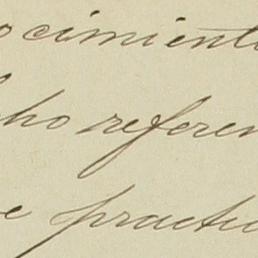 ocimiento
ho referen
e practic